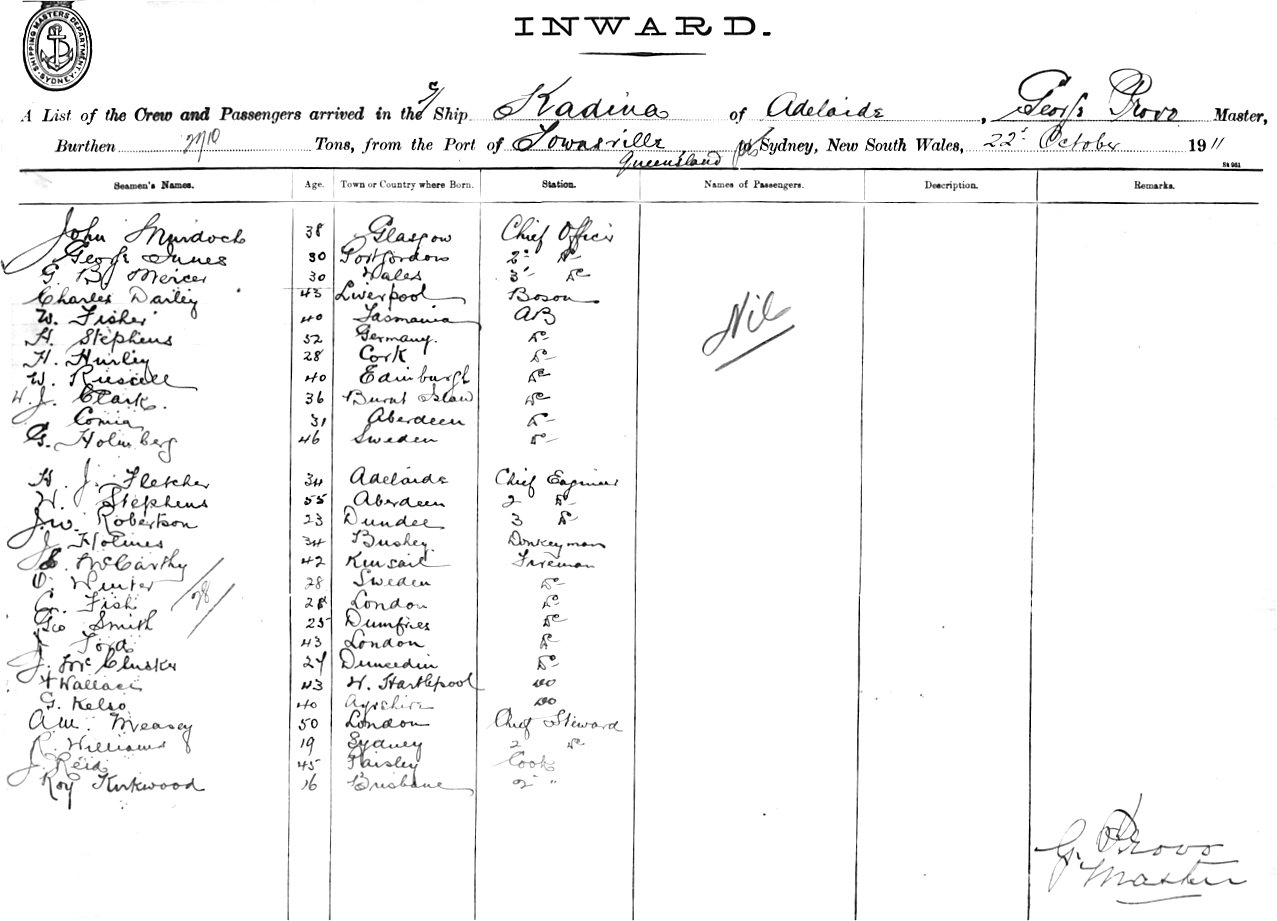 SHIPPING MASTERS DEPARTMENT. SYDNEY
INWARD.
A List of the Crew and Passengers arrived in the S/ Ship Kadina of Adelaide, George Provo Master,
Burthen 2710 Tons, from the Port of Townsville Queensland to Sydney, New South Wales, 22 October 1911
St 961
Seamen's Names. Age. Town or Country where Born. Station. Names of Passengers. Description. Remarks.
John Murdoch 38 Glasgow Chief Officer
George Innes 30 Portgordon 2 Do
G. B. Mercer 30 Wales 3 Do
Charles Darley 43 Liverpool Boson
W. Fisher 40 Tasmania AB
Nil
H. Stephens 52 Germany. Do
H. Hurley 28 Cork Do
W. Russell 40 Edinburgh Do
W. J. Clark. 36 Burnt Island Do
31 Aberdeen Do
G. Holmberg 46 Sweden Do
H. J. Fletcher 34 Adelaide Chief Engineer
W. Stephens 55 Aberdeen 2 Do
J. W. Robertson 23 Dundee 3 Do
J Holmes 34 Bushey Donkeyman
E. McCarthy 42 Kinsail Fireman
O. Winter 28 Sweden Do
28
Fish 28 London Do
Geo Smith 25 Dumfries Do
J Ford 43 London Do
J. McClusker 27 Dunedin Do
Wallace 43 W. Hartlepool Do
G. Kelso 40 Ayrshire Do
A.W. Measey 50 London Chief Steward
R. Williams 19 Sydney 2 Do
J. Reid 45 Paisley Cook
Roy Kirkwood 16 Brisbane 2 "
G. Provo
Master